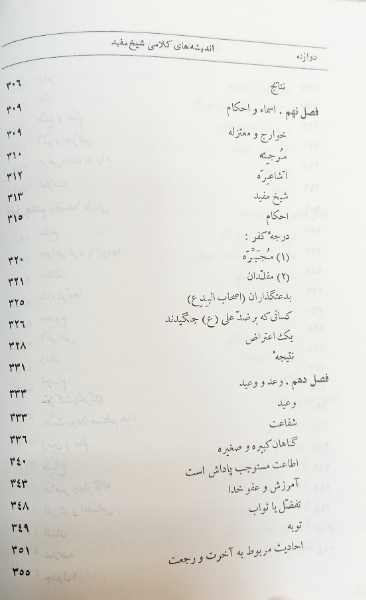 دوازده اندیشه‌های کلامی شیخ مفید
نتایج ۳۰۶
فصل نهم . اسماء و احکام ۳۰۹
خوارج و معتزله ۳۰۹
مُرجِئه ۳۱۰
اشاعِرَه ۳۱۲
شیخ مفید ۳۱۳
احکام ۳۱۵
درجهٔ کفر :
(۱) مُجَبِّرَه ۳۲۰
(۲) مقلّدان ۳۲۱
بدعتگذاران (اصحاب البِدَع) ۳۲۵
کسانی که بر ضدّ علی (ع) جنگیدند ۳۲۶
یک اعتراض ۳۲۸
نتیجهٔ ۳۳۱
فصل دهم . وعد و وعید ۳۳۳
وعید ۳۳۳
شفاعت ۳۳۶
گناهان کبیره و صغیره ۳۴۰
اطاعت مستوجب پاداش است ۳۴۳
آمرزش و عفو خدا ۳۴۸
تفضّل یا ثواب ۳۴۹
توبه ۳۵۱
احادیث مربوط به آخرت و رجعت ۳۵۵